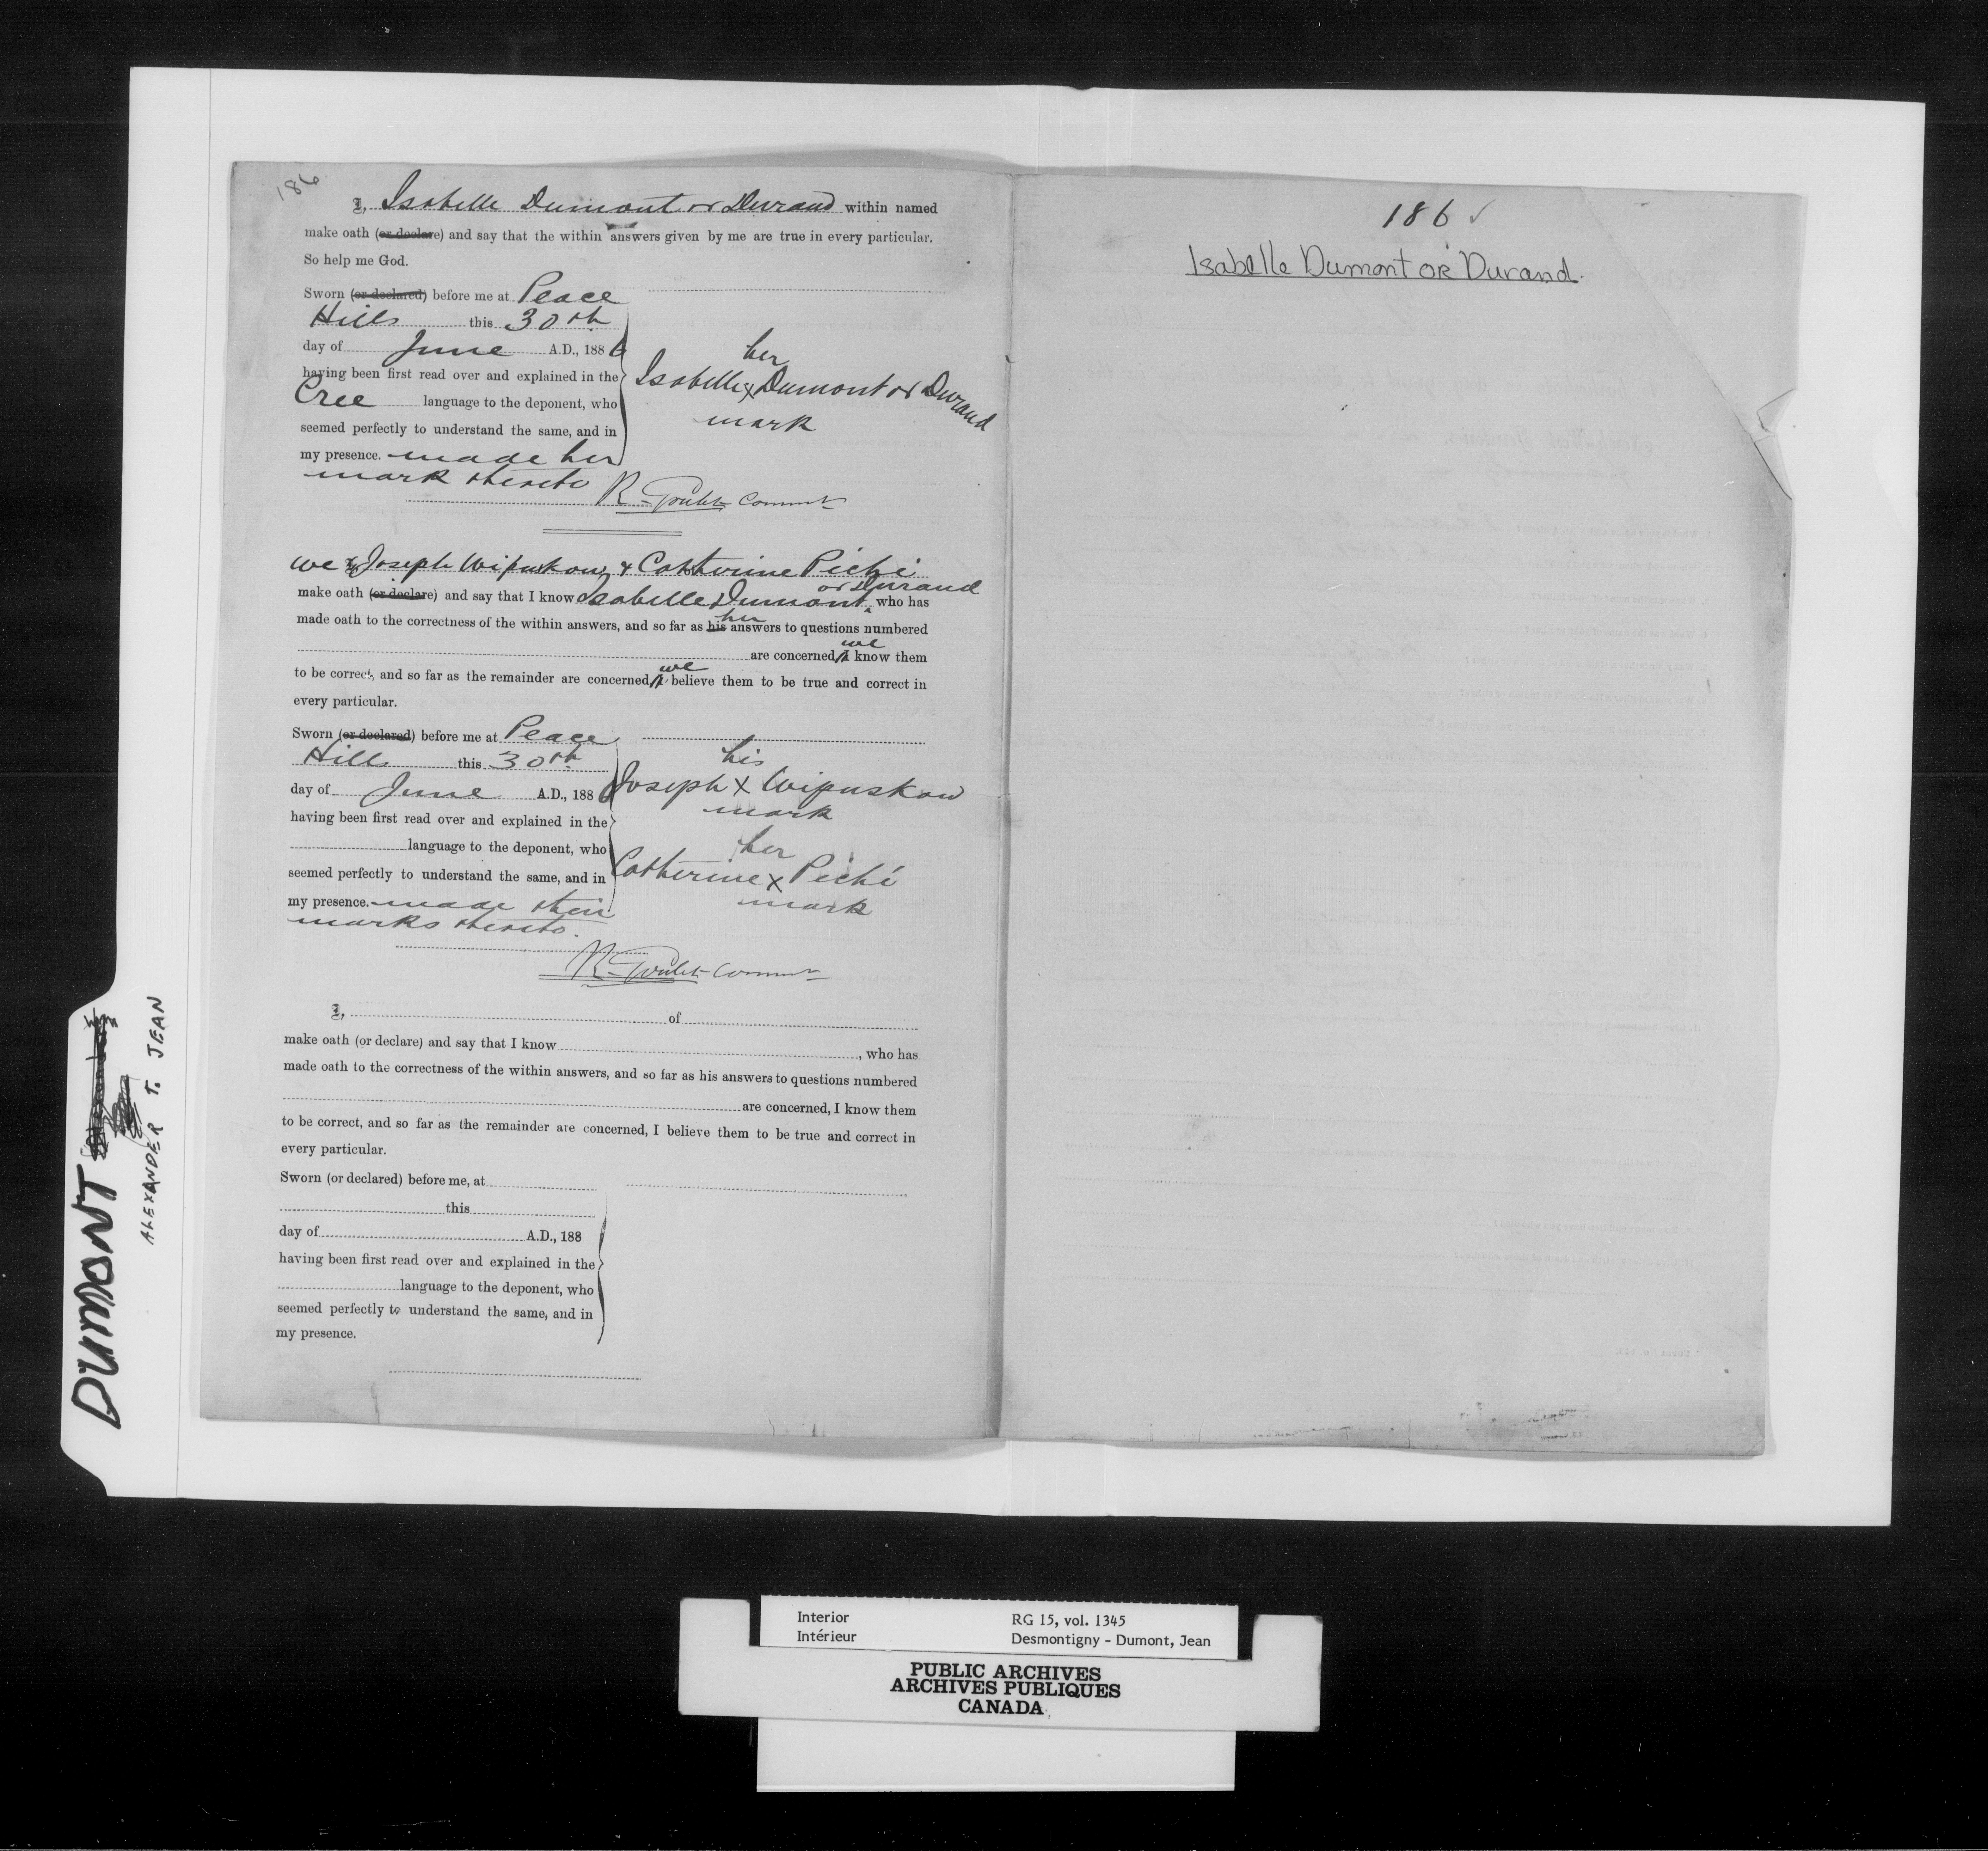 186
I, Isabelle Dumont or Durand within named
make oath (or declare) and say that the within answers given by me are true in every particular.
So help me God.
Sworn (or declared) before me at Peace
Hills this 30th
day of June A.D., 1886
having been first read over and explained in the
Cree language to the deponent, who
seemed perfectly to understand the same, and in
my presence. made her
mark thereto
her
Isabelle x Dumont or Durand
mark
R. Goulet Commr
we I, Joseph Wipuskow & Catherine Piché
or Durand
make oath (or declare) and say that I know Isabelle Dumont who has
her
made oath to the correctness of the within answers, and so far as his answers to questions numbered
we
are concerned, I know them
we
to be correct, and so far as the remainder are concerned, I believe them to be true and correct in
every particular.
Sworn (or declared) before me at Peace
Hills this 30th
day of June A.D., 1886
having been first read over and explained in the
language to the deponent, who
seemed perfectly to understand the same, and in
my presence. made their
marks thereto.
his
Joseph x Wipuskow
mark
her
Catherine x Piché
mark
R. Goulet Commr
I, of
make oath (or declare) and say that I know , who has
made oath to the correctness of the within answers, and so far as his answers to questions numbered
are concerned, I know them
to be correct, and so far as the remainder are concerned, I believe them to be true and correct in
every particular.
Sworn (or declared) before me, at
this
day of A.D., 188
having been first read over and explained in the
language to the deponent, who
seemed perfectly to understand the same, and in
my presence.
186 ✓
Isabelle Dumont or Durand.
DUMONT
ALEXANDER T. JEAN
Interior RG 15, vol. 1345
Intérieur Desmontigny - Dumont, Jean
PUBLIC ARCHIVES
ARCHIVES PUBLIQUES
CANADA